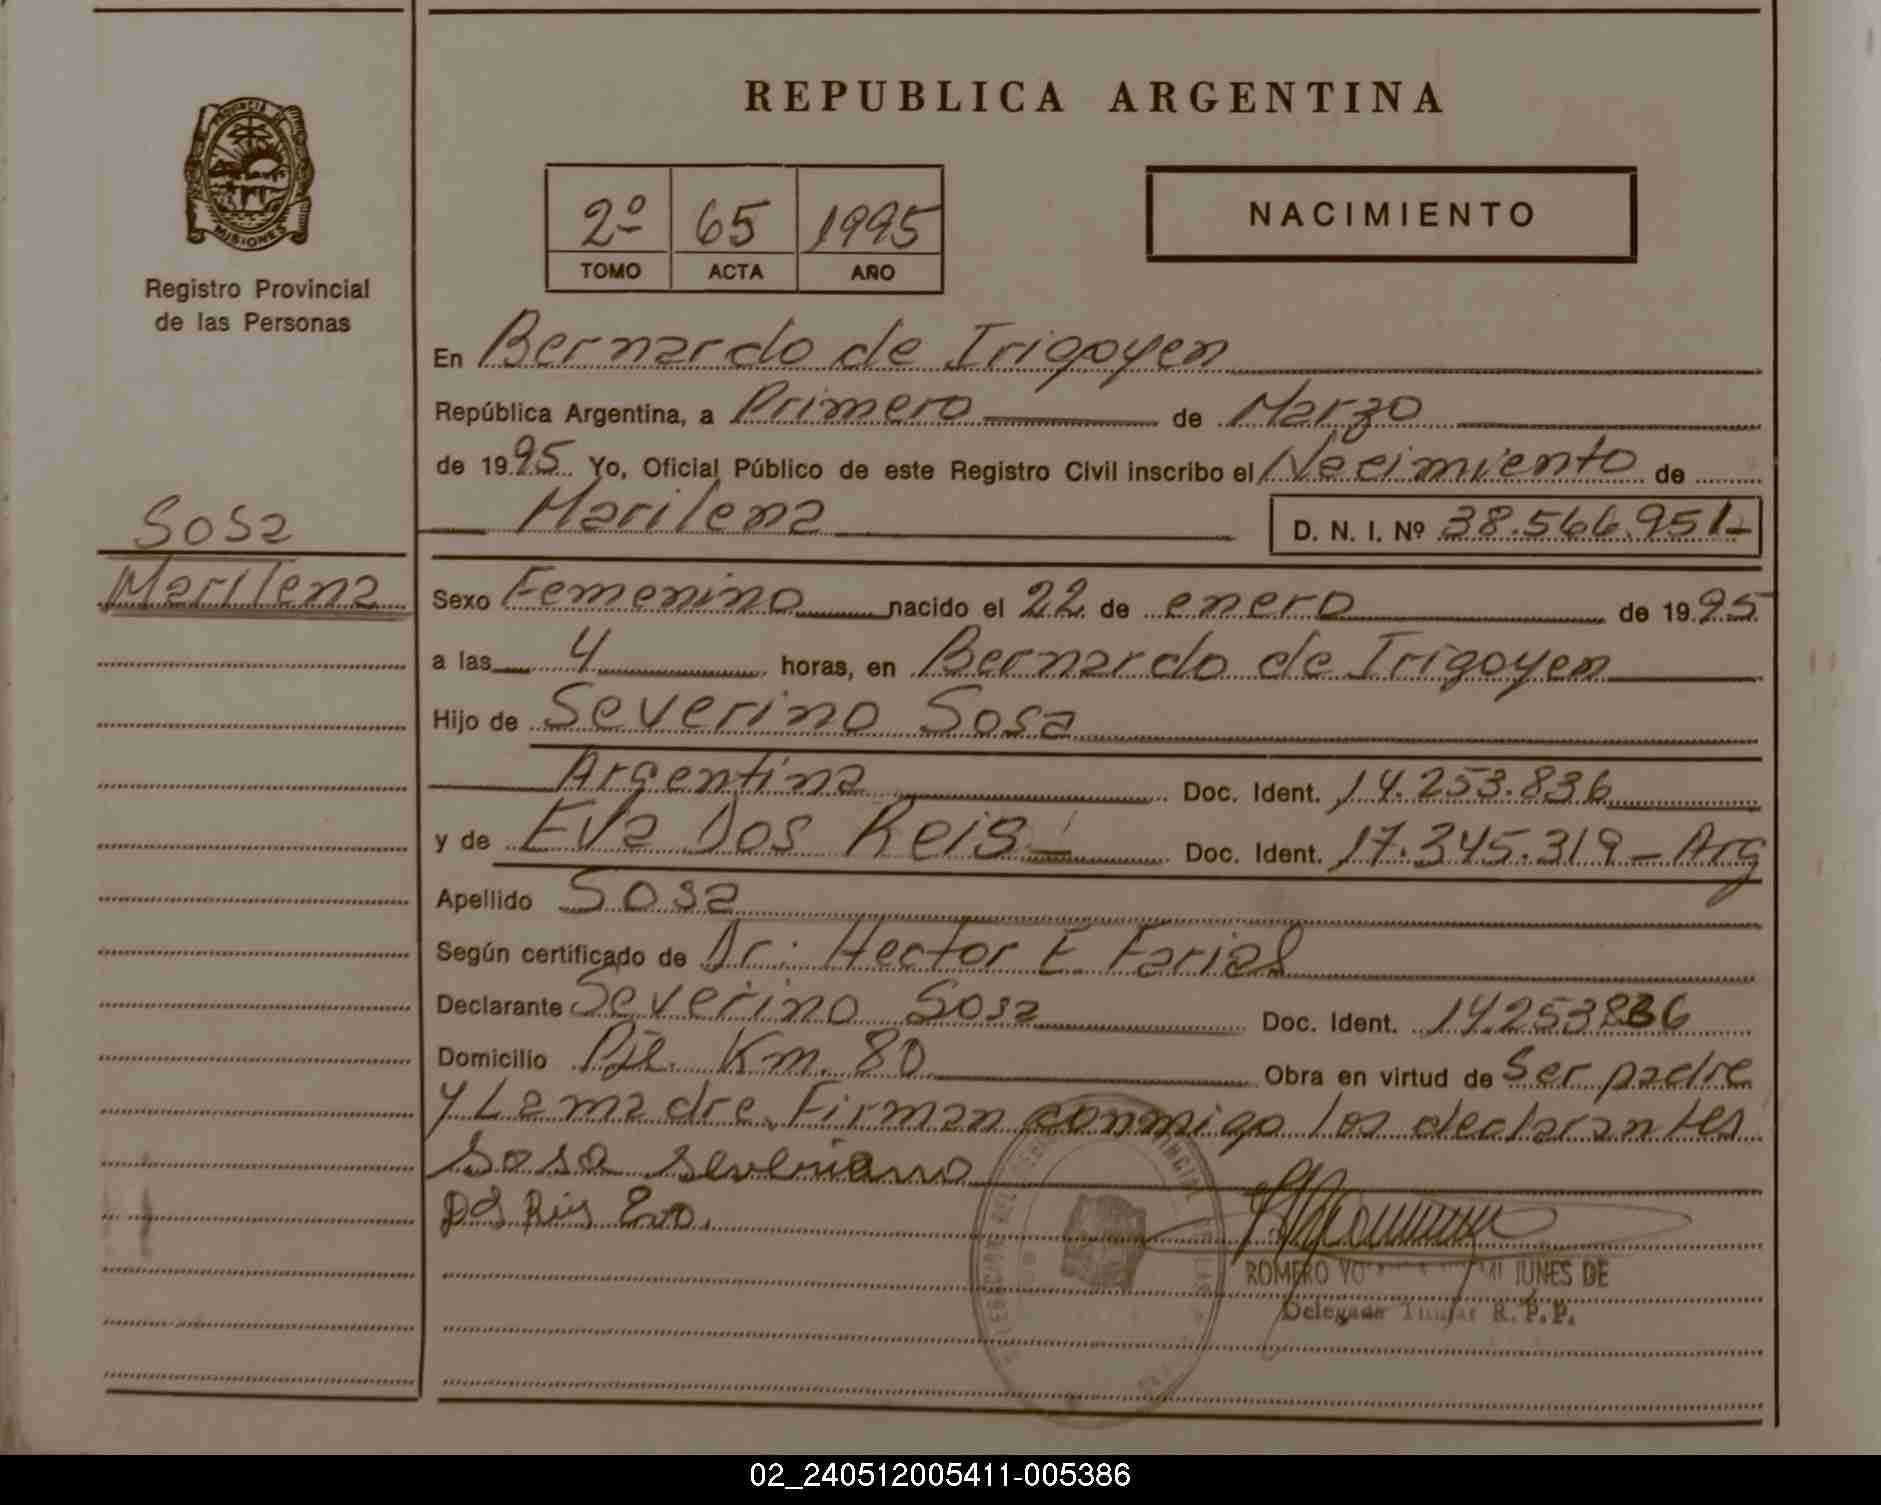 REPUBLICA ARGENTINA
PROVINCIA DE
MISIONES
Registro Provincial
de las Personas
2º 65 1995
TOMO ACTA AÑO
NACIMIENTO
En Bernardo de Irigoyen
República Argentina, a Primero de Marzo
de 1995 Yo, Oficial Público de este Registro Civil inscribo el Nacimiento de
Marilena D. N. I. Nº 38.566.951-
Sosa
Marilena
Sexo Femenino nacido el 22 de enero de 1995
a las 4 horas, en Bernardo de Irigoyen
Hijo de Severino Sosa
Argentina Doc. Ident. 14.253.836
y de Eva Dos Reis Doc. Ident. 17.345.319 - Arg
Apellido Sosa
Según certificado de Dr: Hector E. Farial
Declarante Severino Sosa Doc. Ident. 14253836
Domicilio Pje. Km. 80 Obra en virtud de Ser padre
y La madre. Firman conmigo los declarantes
Sosa Severiano
Dos Reis Eva.
ROMERO NUNES DE
Delegada Titular R. P. P.
02_240512005411-005386